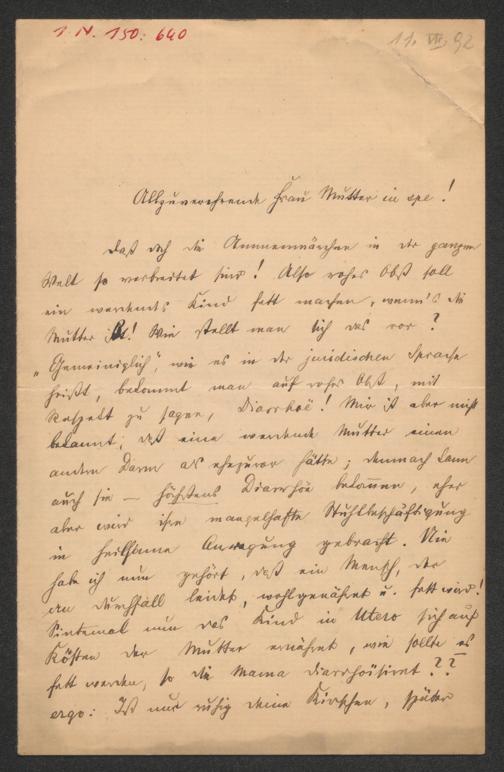 I.N. 150.640
11. VII. 92
Allzuverehrende Frau Mutter in spe!
Daß doch die Ammenmärchen in der ganzen
Welt so verbreitet sind! Also rohes Obst soll
ein werdendes Kind fett machen, wenn's die
Mutter ißt! Wie stellt man sich das vor?
„Gemeiniglich", wie es in der juridischen Sprache
heißt, bekommt man auf rohes Obst, mit
Respekt zu sagen, Diarrhoë! Mir ist aber nicht
bekannt, daß eine werdende Mutter einen
andern Darm als ehezuvor hätte; demnach kann
auch sie — höchstens Diarrhöe bekommen, eher
aber wird ihre mangelhafte Stuhlbeschäftigung
in heilsame Anregung gebracht. Nie
habe ich nun gehört, daß ein Mensch, der
an Durchfall leidet, wohlgenährt u. fett wird!
Sintemal nun das Kind in Utero sich auf
Kosten der Mutter ernährt, wie sollte es
fett werden, so die Mama diarrhöisirt??
ergo: Iß nur ruhig deine Kirschen, später